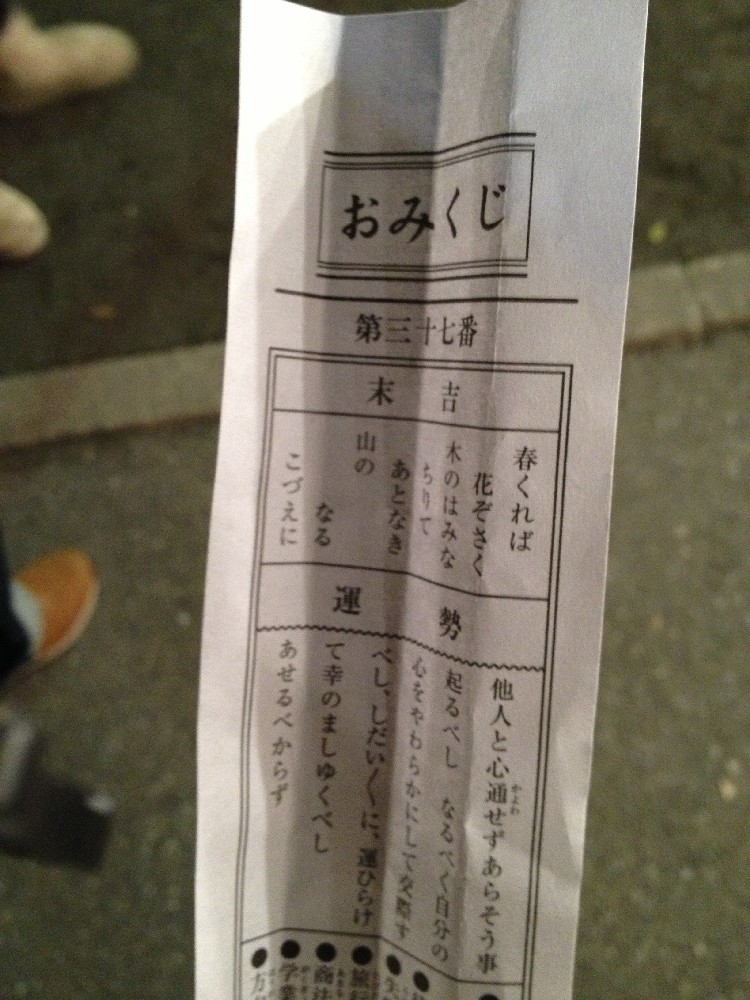 おみくじ
第三十七番
末吉
春くれば
花ぞさく
木のはみな
ちりて
あとなき
山の
なる
こづえに
運勢
他人と心通せずあらそう事
かよわ
起るべし なるべく自分の
心をやわらかにして交際す
べし、しだい〳〵に、運ひらけ
て幸のましゆくべし
あせるべからず
旅行
商法
学業